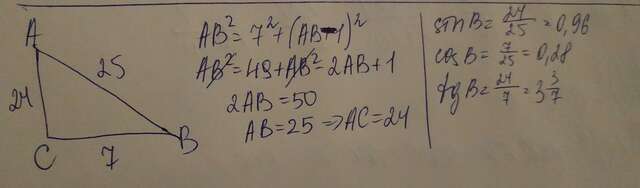 A
25
24
C
7
B
AB² = 7² + (AB-1)²
AB² = 49 + AB² - 2AB + 1
2AB = 50
AB = 25 ⇒ AC = 24
sin B = 24/25 = 0,96
cos B = 7/25 = 0,28
tg B = 24/7 = 3 3/7